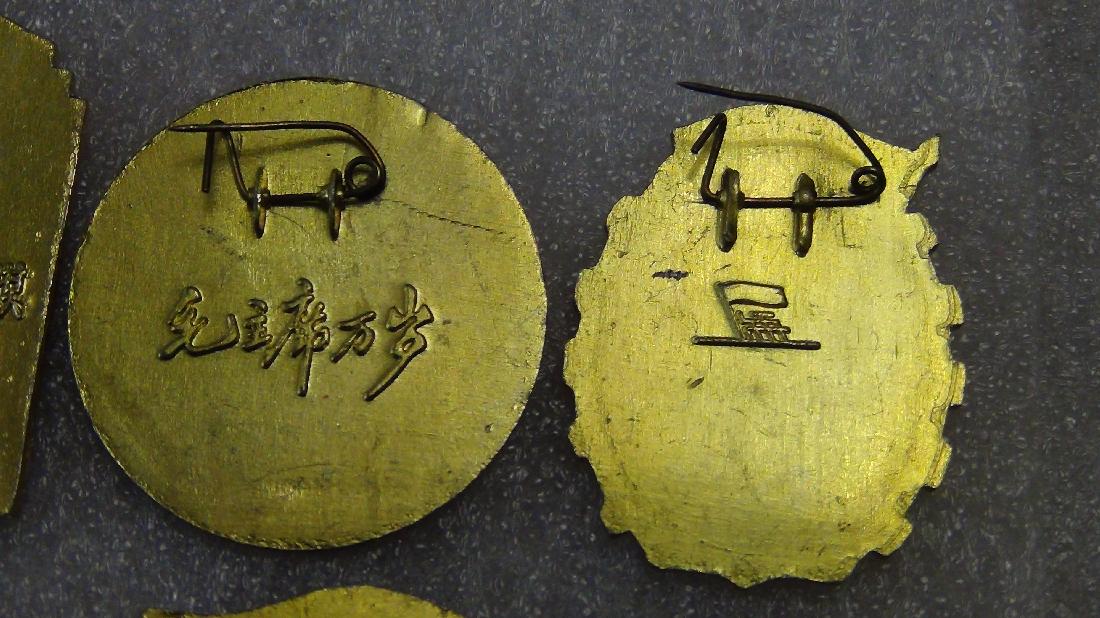 毛主席万岁